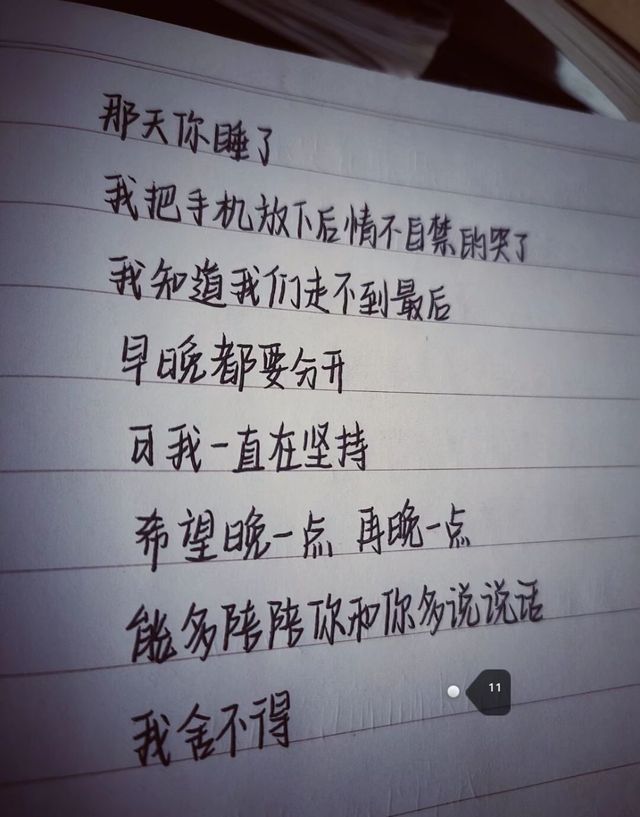 那天你睡了
我把手机放下后情不自禁的哭了
我知道我们走不到最后
早晚都要分开
可我一直在坚持
希望晚一点 再晚一点
能多陪陪你和你多说说话
11
我舍不得